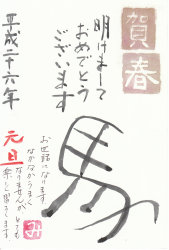 賀春
明けまして
おめでとう
ございます
馬
お世話になります
なかなかうまく
なりませんがとても
楽しく習ってます
平成二十六年
元旦
み